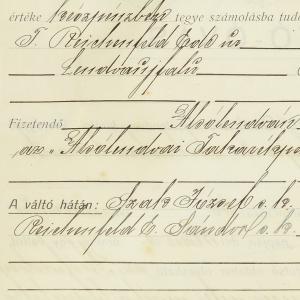 értéke készpénzben tegye számolásba tudó
T. Reichenfeld Ede úr
Lendvaujfalu
Fizetendő Alsólendván
az „Alsólendvai Takarékp
A váltó hátán: Szak József s. k.
Reichenfeld E. Sándor s. k.